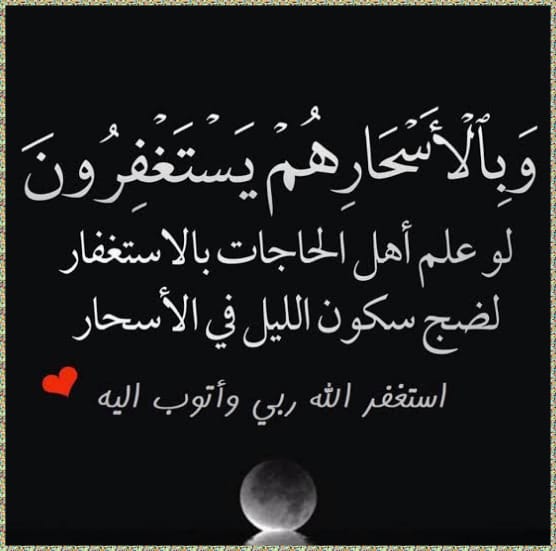 وَبِٱلْأَسْحَارِ هُمْ يَسْتَغْفِرُونَ
لو علم أهل الحاجات بالاستغفار
لضج سكون الليل في الأسحار
استغفر الله ربي وأتوب اليه